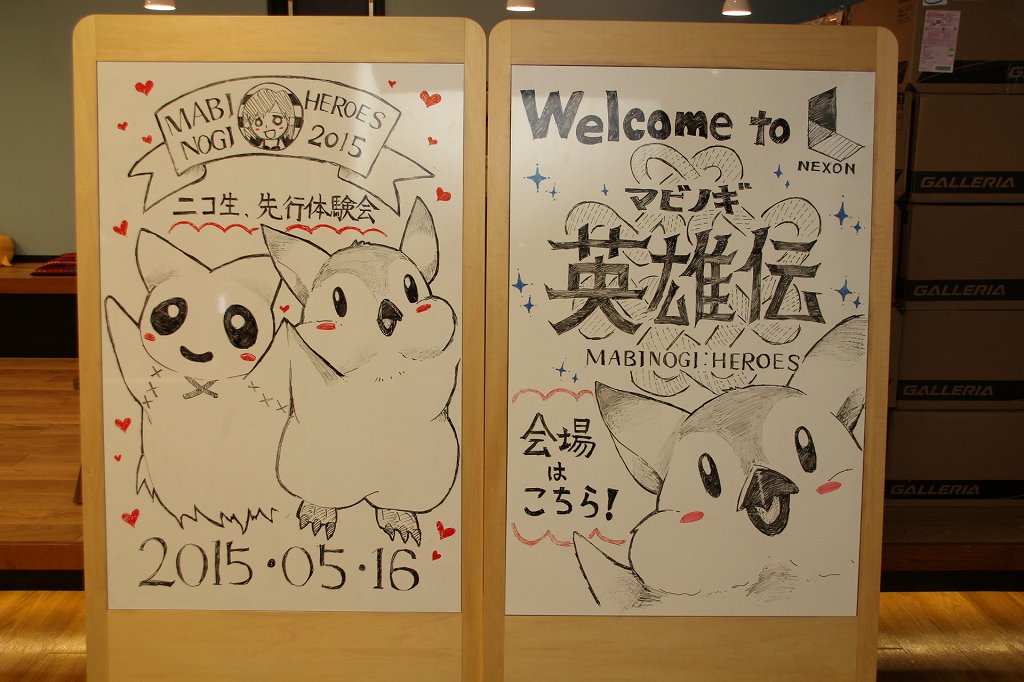 MABI
NOGI
HEROES
2015
ニコ生、先行体験会
2015・05・16
Welcome to
NEXON
マビノギ
英雄伝
MABINOGI:HEROES
会場
は
こちら!
GALLERIA
GALLERIA
GALLERIA
GALLERIA